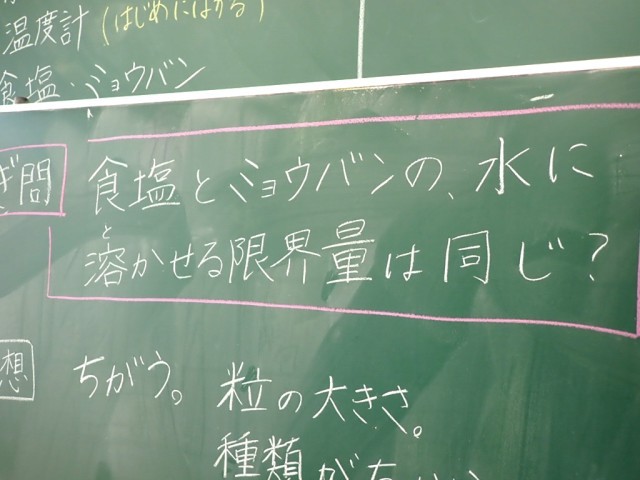 温度計 (はじめにはかる)
食塩・ミョウバン
ぎ問
食塩とミョウバンの、水に
と
溶かせる限界量は同じ?
想
ちがう。粒の大きさ。
種類が